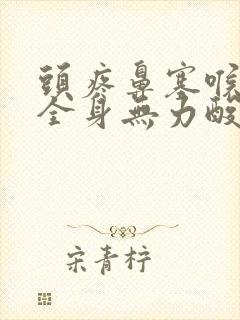 頭疼鼻塞喉
全身無力酸
宋青柠